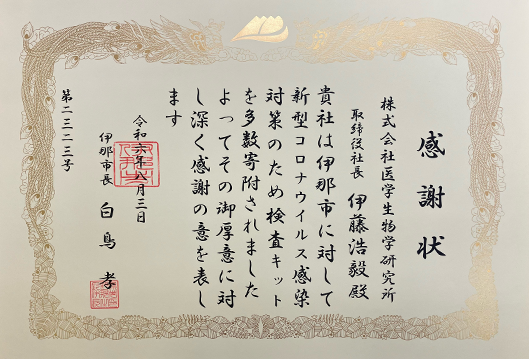 感謝状
株式会社医学生物学研究所
取締役社長 伊藤浩毅殿
貴社は伊那市に対して
新型コロナウイルス感染
対策のため検査キット
を多数寄附されました
よってその御厚意に対
し深く感謝の意を表し
ます
令和六年八月三日
伊那市長 白鳥孝
第二三二三号